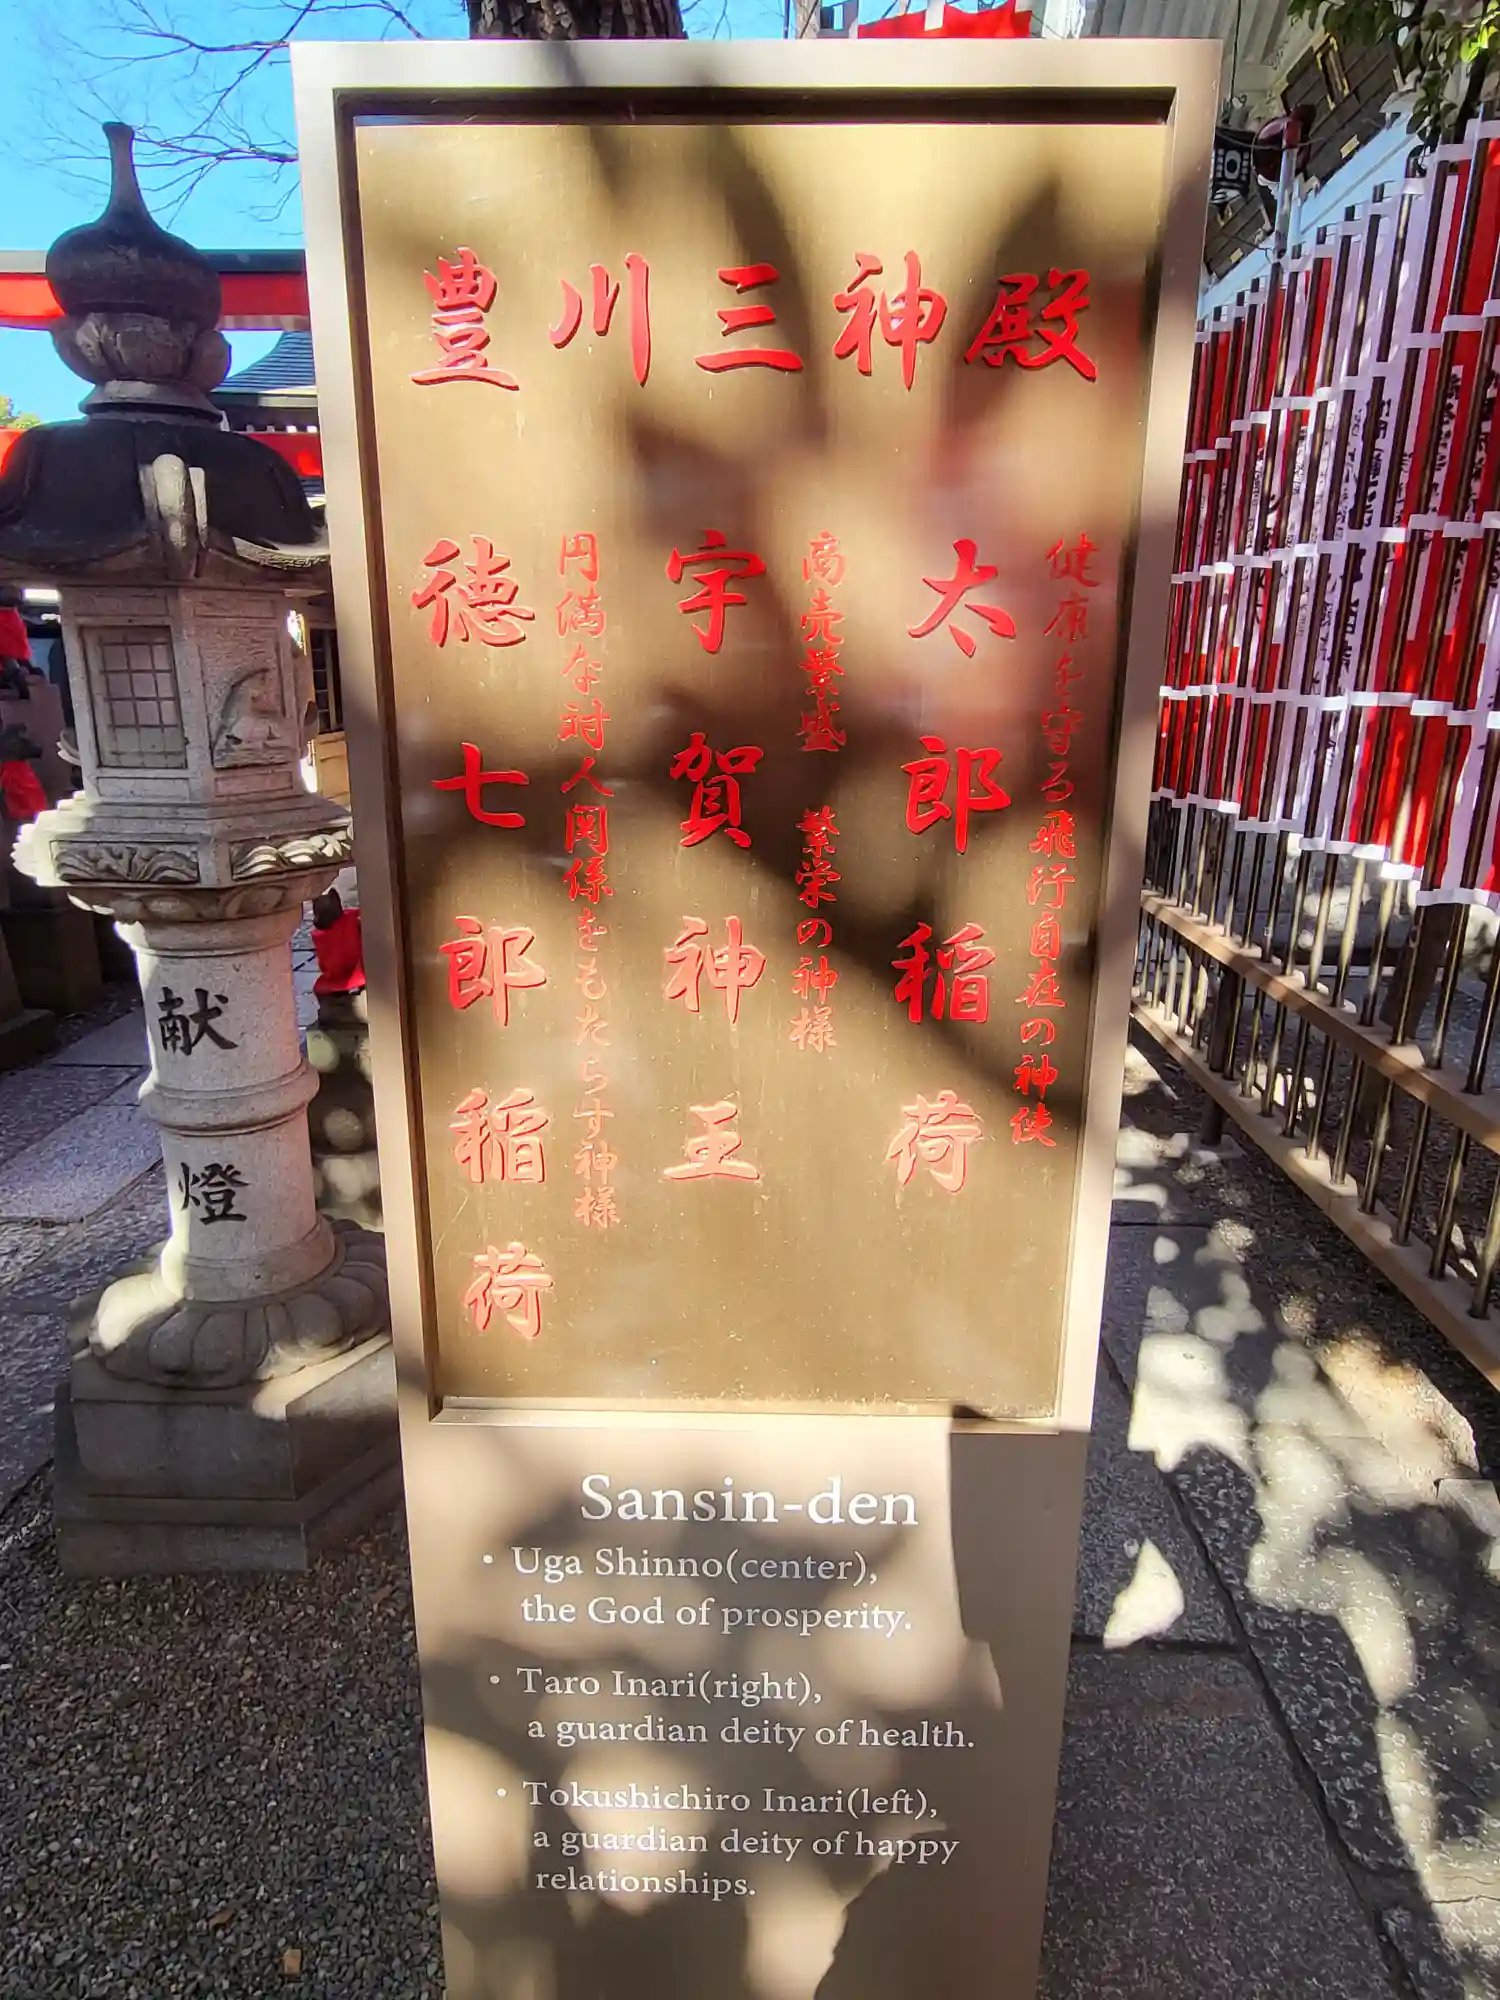 豊川三神殿
健康を守る飛行自在の神使
太郎稲荷
商売繁盛 繁栄の神様
宇賀神王
円満な対人関係をもたらす神様
徳七郎稲荷
献燈
Sansin-den
・Uga Shinno(center),
the God of prosperity.
・Taro Inari(right),
a guardian deity of health.
・Tokushichiro Inari(left),
a guardian deity of happy
relationships.